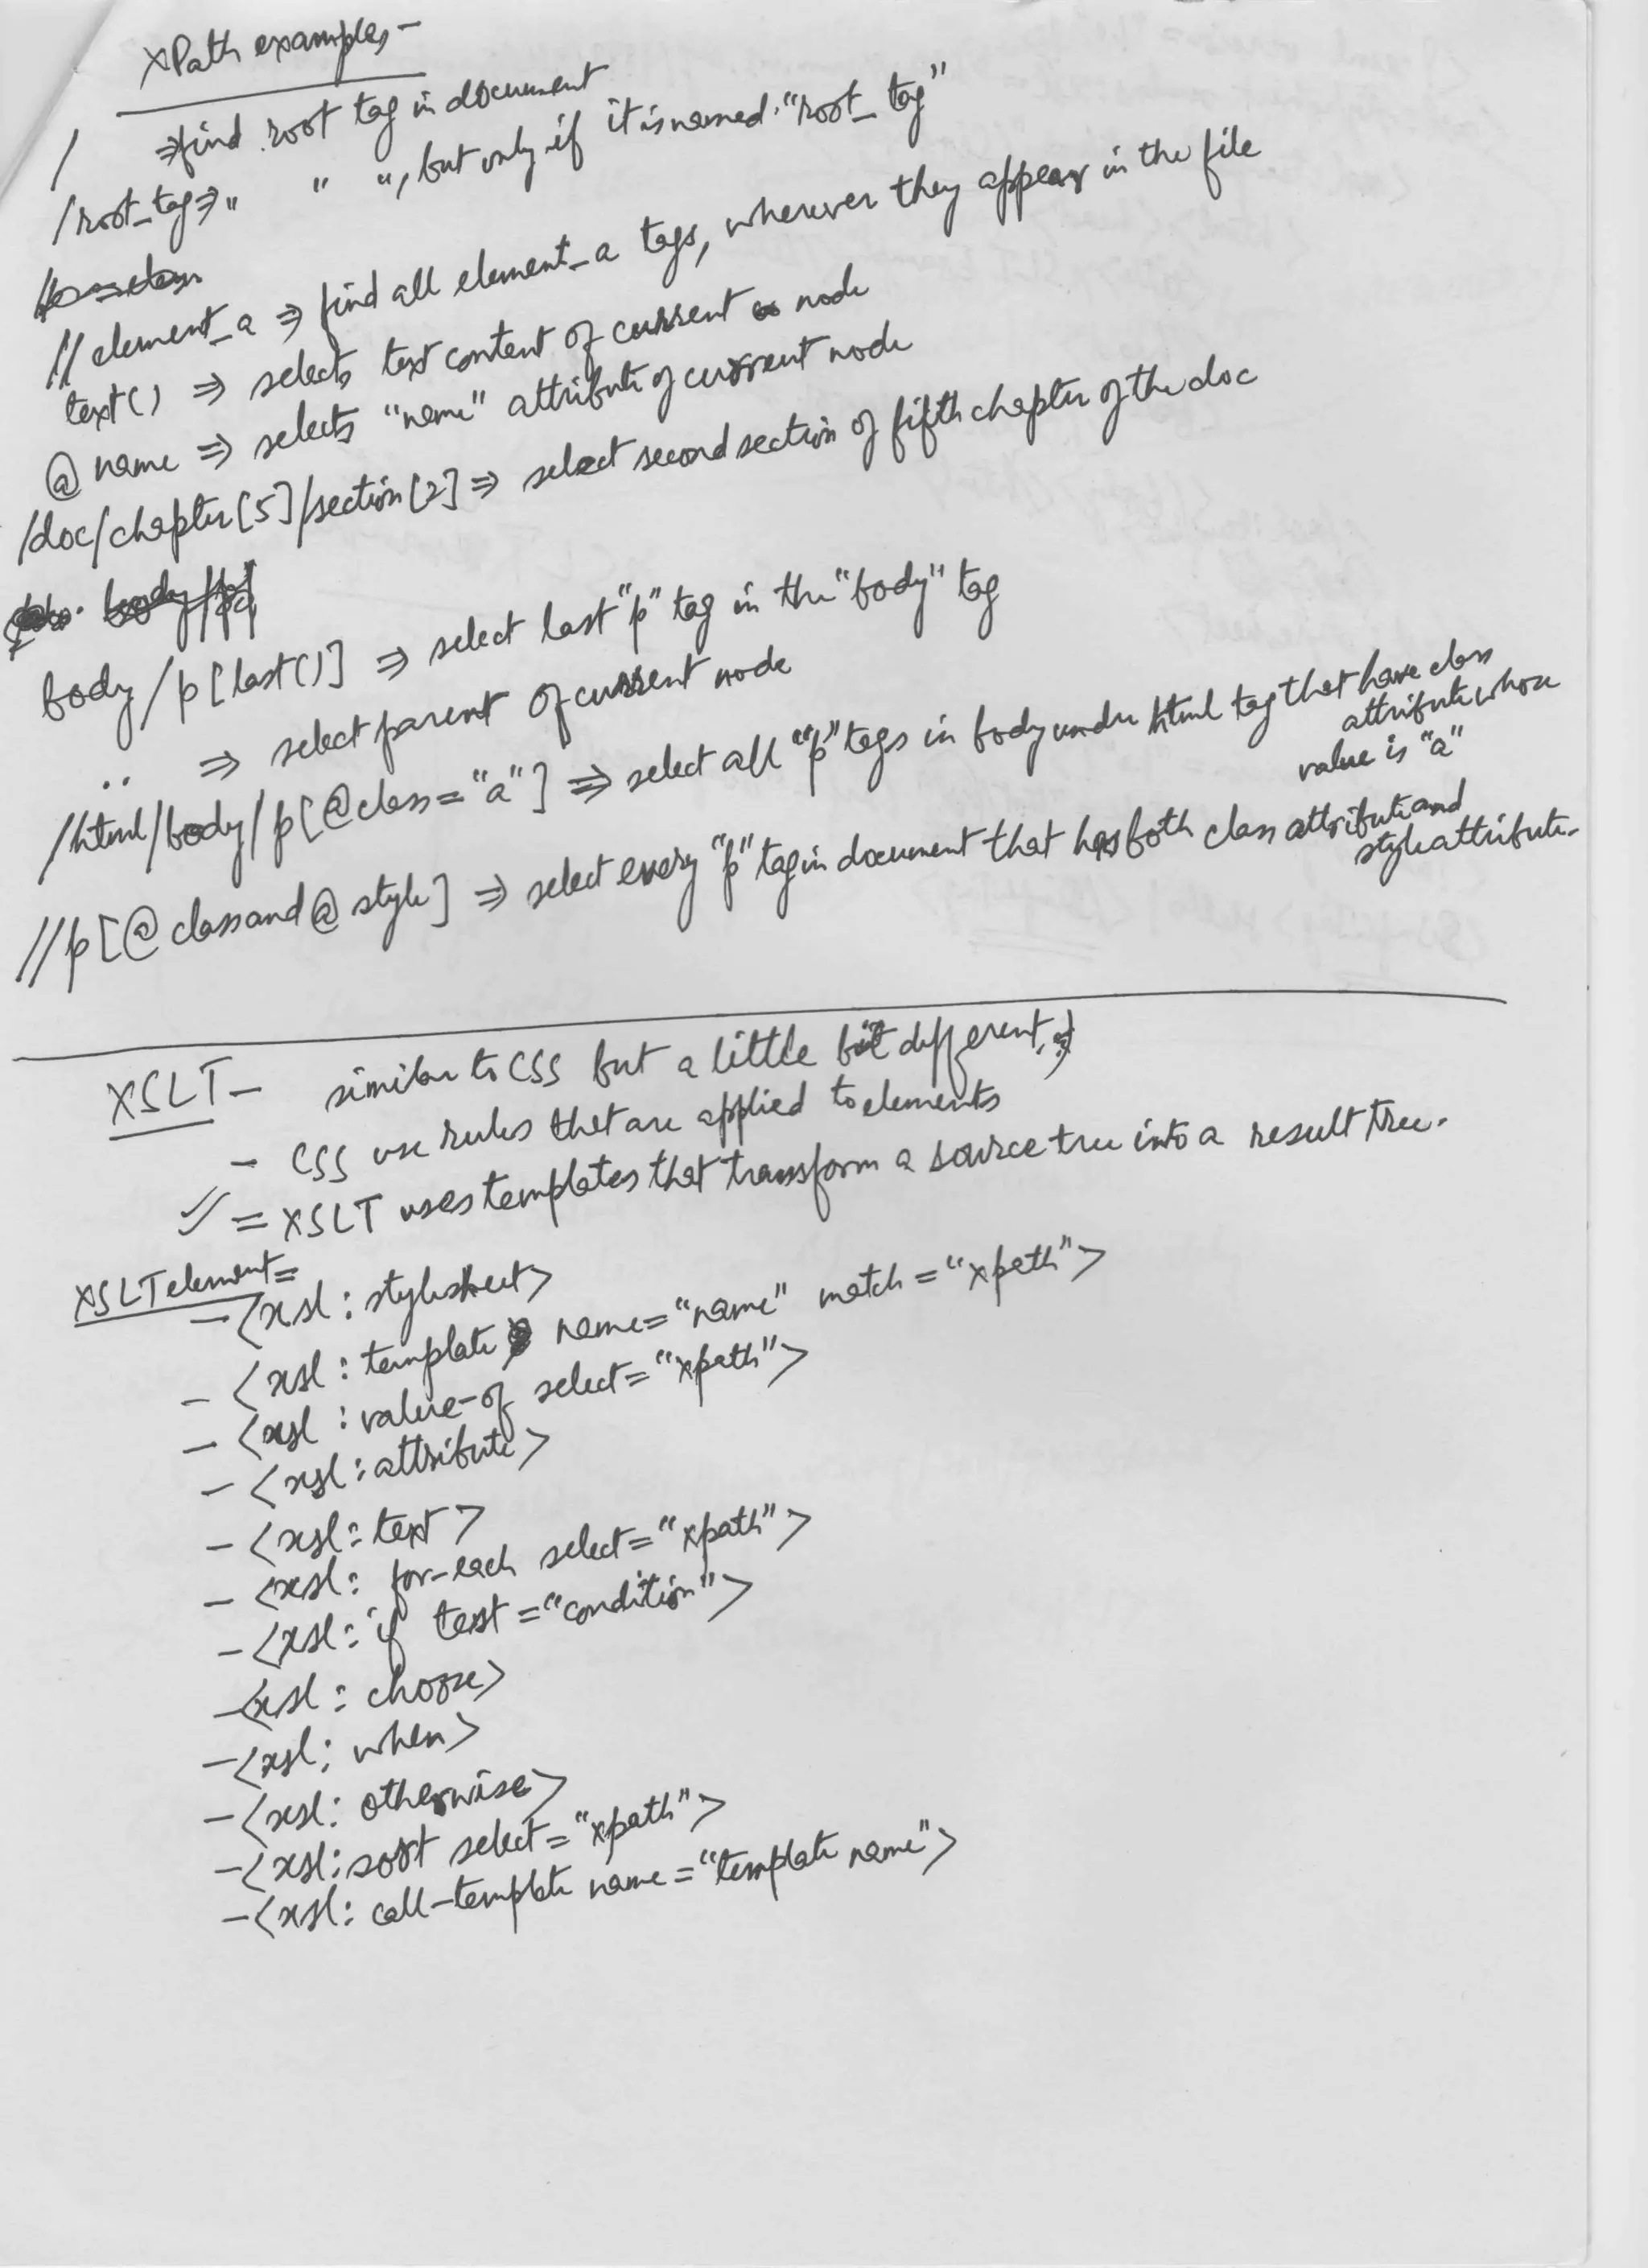 XPath examples -
/ ⇒ find root tag in document
/root_tag ⇒ " " ", but only if it is named "root_tag"
//element_a ⇒ find all element_a tags, wherever they appear in the file
text() ⇒ selects text content of current node
@name ⇒ selects "name" attribute of current node
/doc/chapter[5]/section[2] ⇒ select second section of fifth chapter of the doc
body/p[last()] ⇒ select last "p" tag in the "body" tag
.. ⇒ select parent of current node
/html/body/p[@class="a"] ⇒ select all "p" tags in body under html tag that have class
attribute whose
value is "a"
//p[@class and @style] ⇒ select every "p" tag in document that has both class attribute and
style attribute.
XSLT - similar to CSS but a little bit different
- CSS use rules that are applied to elements
= XSLT uses templates that transform a source tree into a result tree.
XSLT element =
- <xsl: stylesheet>
- <xsl: template name="name" match="xpath">
- <xsl: value-of select="xpath">
- <xsl: attribute>
- <xsl: text>
- <xsl: for-each select="xpath">
- <xsl: if test="condition">
- <xsl: choose>
- <xsl: when>
- <xsl: otherwise>
- <xsl: sort select="xpath">
- <xsl: call-template name="template name">